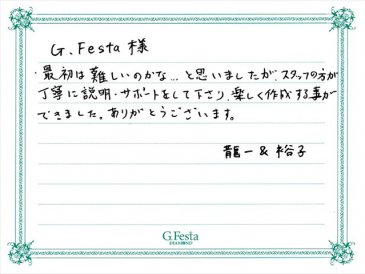 G.Festa 様
・最初は難しいのかな…と思いましたが、スタッフの方が
丁寧に説明・サポートをして下さり、楽しく作成する事が
できました。ありがとうございます。
龍一 & 裕子
G.Festa
DIAMOND